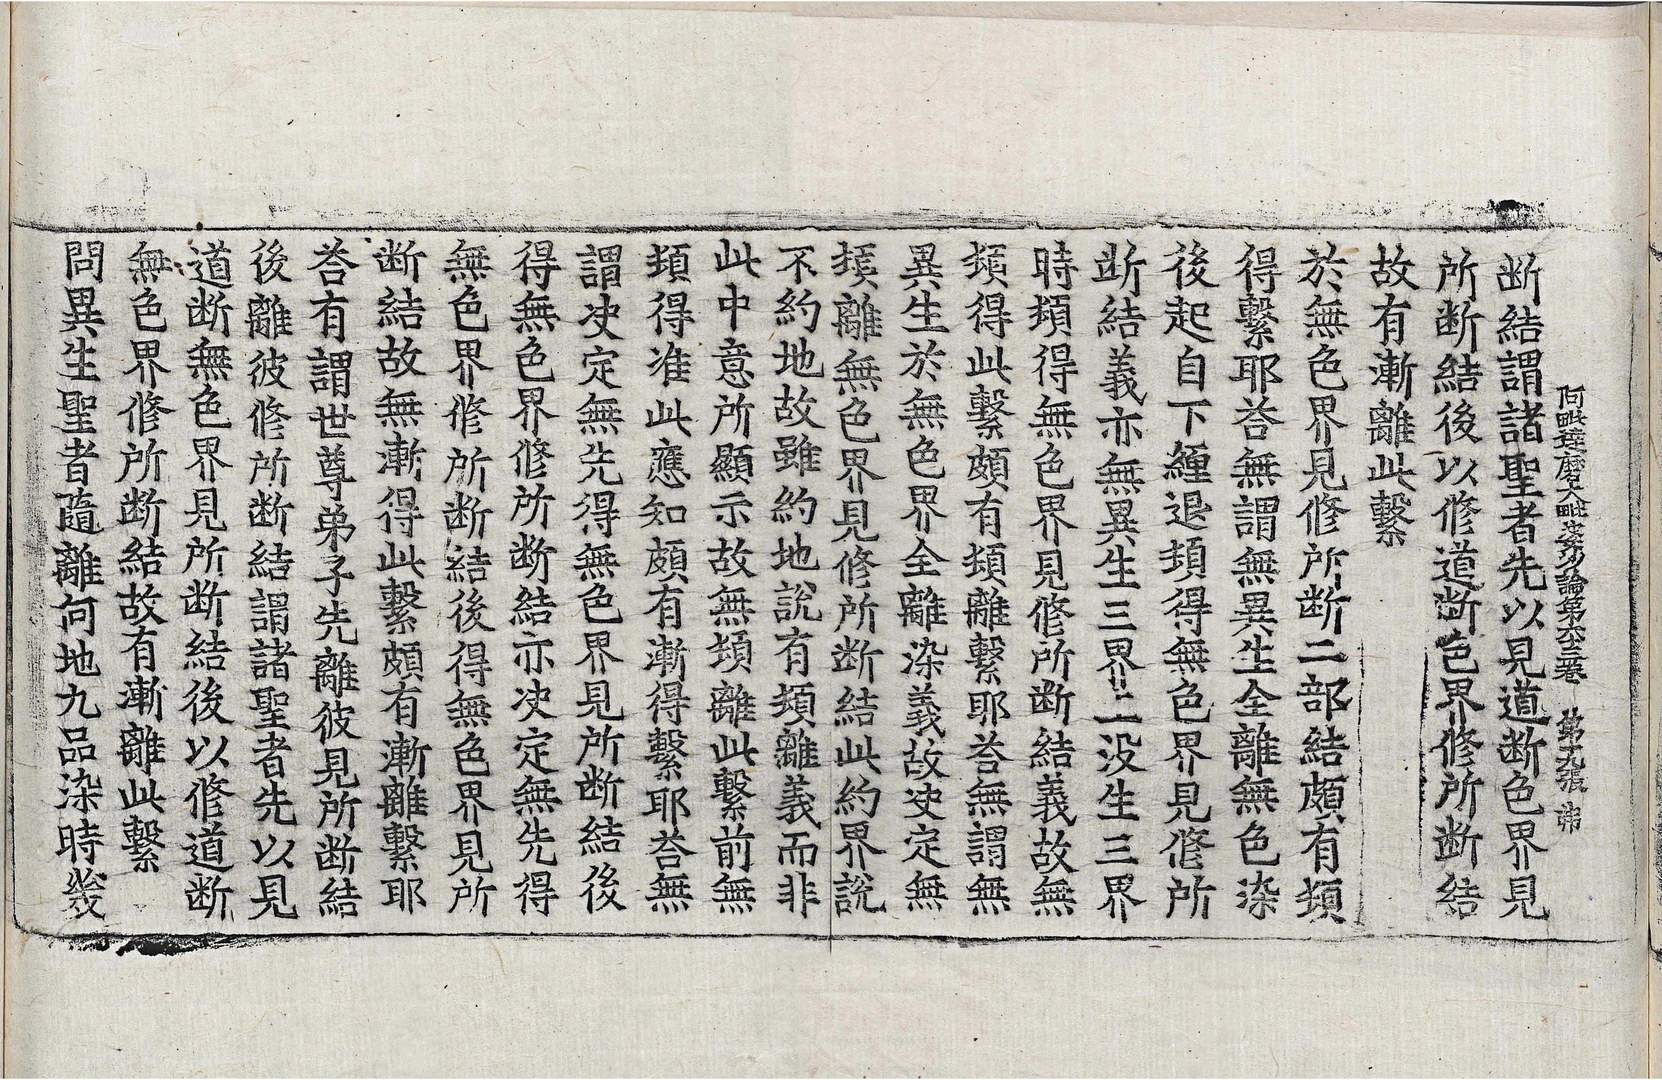 阿毗達磨大毗婆沙論第六十三卷 第十九張 弗
断結謂諸聖者先以見道断色界見
所断結後以修道断色界修所断結
故有漸離此繫
於無色界見修所断二部結頗有頓
得繫耶荅無謂無異生全離無色染
後起自下纏退頓得無色界見修所
断結義亦無異生三界上没生三界
時頓得無色界見修所断結義故無
頓得此繫頗有頓離繫耶荅無謂無
異生於無色界全離染義故决定無
頓離無色界見修所断結此約界說
不約地故雖約地說有頓離義而非
此中意所顯示故無頓離此繫前無
頓得准此應知頗有漸得繫耶荅無
謂决定無先得無色界見所断結後
得無色界修所断結亦决定無先得
無色界修所断結後得無色界見所
断結故無漸得此繫頗有漸離繫耶
荅有謂世尊弟子先離彼見所断結
後離彼修所断結謂諸聖者先以見
道断無色界見所断結後以修道断
無色界修所断結故有漸離此繫
問異生聖者隨離何地九品染時幾